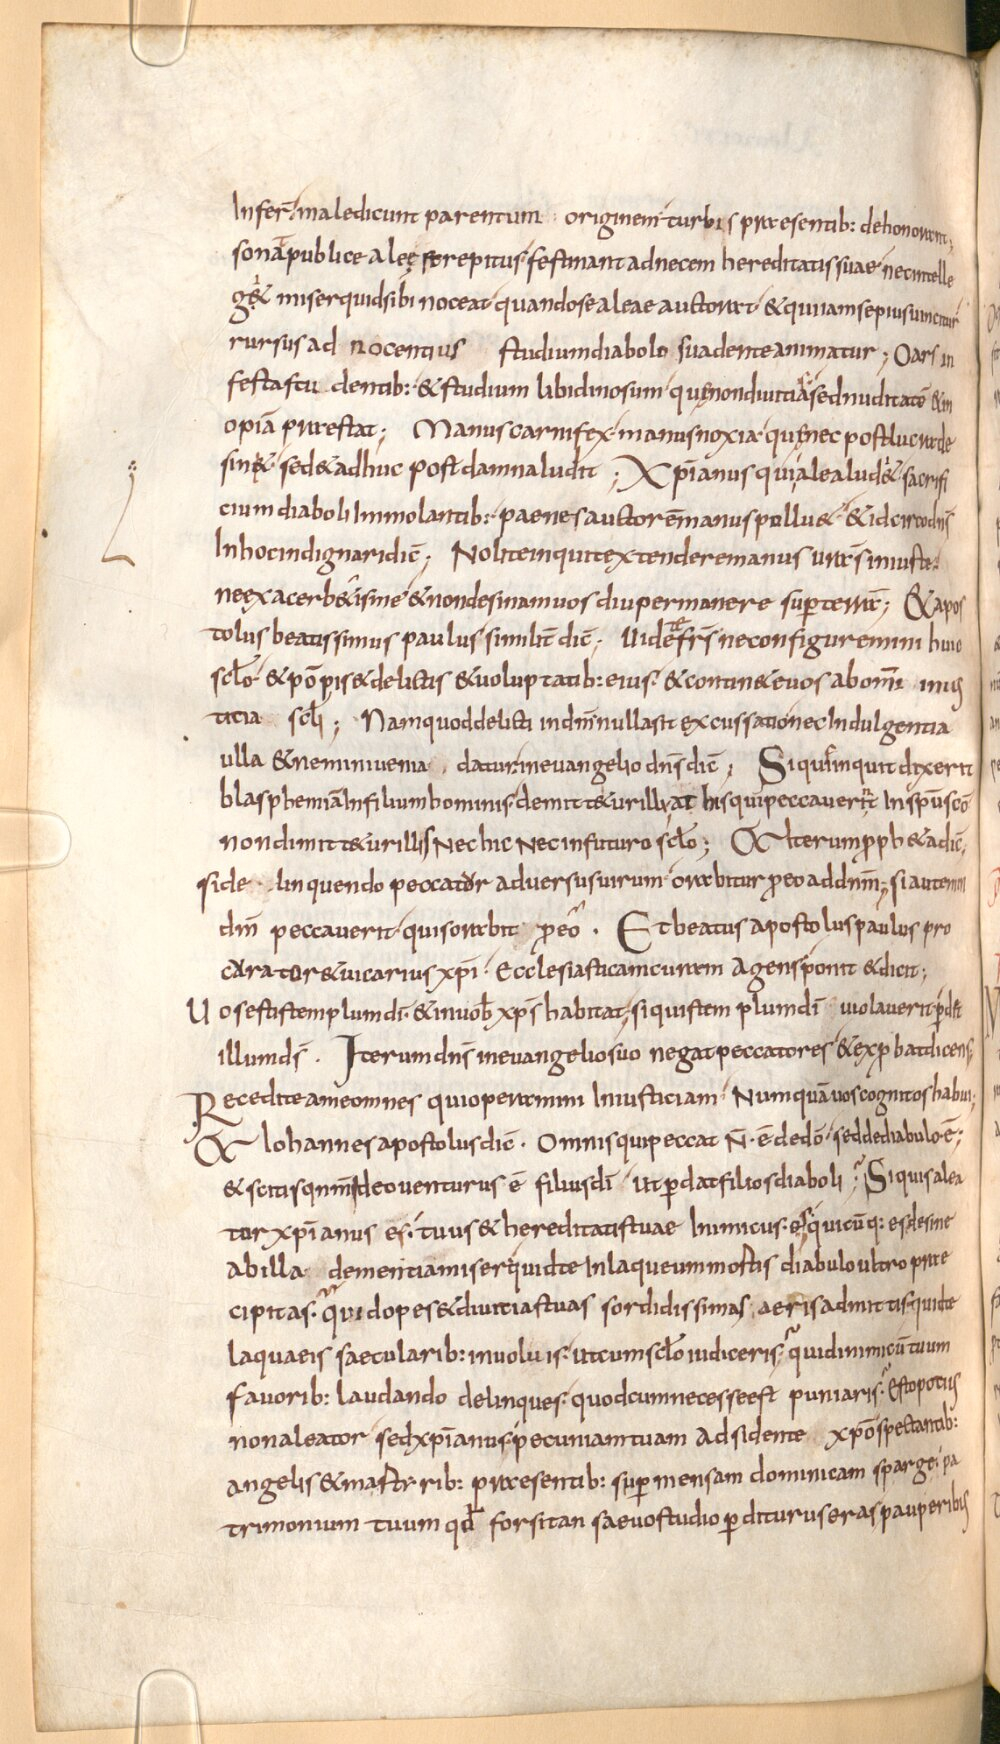 Infer̄ maledicunt parentum originem turbis praesentib: dehonorant;
sonat publice aleę strepitus festinant adnecem hereditatis suae necintelle
g& miser quidsibi noceat quandose aleae auctorat & quiiamsepiusuincitur
rursus ad nocentius studium diabolo suadente animatur; O ars in
festa studentib: & studium libidinosum qu nondiuitias sed nuditatē & in
opiā praestat; Manus carnifex manus noxia qu nec post lucra de
sin& sed & adhuc post damna ludit; Xp̄ianus qui alea lud& sacrifi
cium diaboli Immolantib: paenes auctorē manus pollu& & idcirco dn̄s
In hoc indignari dic̄; Nolite inquit extendere manus urās iniuste
ne exacerb&is me & non desinam uos diu permanere super terrā; & apos
tolus beatissimus paulus similit̄ dic̄; Uidete fr̄s ne configuremini huic
scło & pōpis & delictis & uoluptatib: eius & contin& euos abomī inius
ticia scłi; Nam quod delicti in dn̄m nulla sit excussatio nec Indulgentia
ulla & nemini uenia datur in euangelio dn̄s dic̄; Siquis inquit dixerit
blasphemiā In filium hominis demitt&ur illi at his qui peccauerit In sp̄u scō
non dimitt&ur illis Nec hic Nec in futuro scło; & Iterum pph&a dic̄,
si delinquendo peccator aduersus uirum orabitur p eo ad dn̄m; si autem in
dm̄ peccauerit quis orabit p eo. Et beatus apostolus paulus pro
curator & uicarius xp̄i Ecclesiasticam curam agens ponit & dicit;
Uos estis templum dī & in uob xp̄s habitat, si quis templum dī uiolauerit pd&
illum ds̄. Iterum dn̄s in euangelio suo negat peccatores & exp batdicens;
Recedite a me omnes qui operamini Iniusticiam Numquā uos cognitos habui;
& Iohannes apostolus dic̄. Omnis qui peccat N̄. ē dedō sed de diabulo ē;
& scitis qm̄ Ideo uenturus ē filius dī ut pdat filios diaboli; Siquis alea
tor xp̄ianus es. tuus & hereditatis tuae Inimicus. es quicūq: es desine
ab illa dementia miser quid te In laqueum mortis diabulo ultro prae
cipitas. qui dopes & diuitias tuas sordidissimas aeris admittis. quid te
laquaeis saecularib: inuoluis. ut cum scło iudiceris; quid inimicū tuum
fauorib: laudando delinques. quodcum necesse est puniaris. Esto potius
non aleator sed xp̄ianus. pecuniam tuam adsidente xp̄o spectantib:
angelis & mastirib: praesentib: super mensam dominicam sparge. pa
trimonium tuum qd forsitan saeuo studio pditurus eras pauperibus